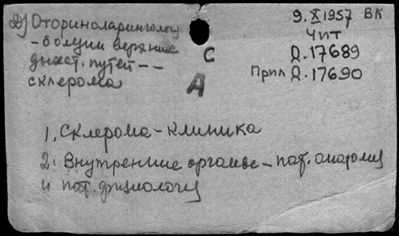 Д) Оториноларинголог
- болезни верхние
дыхат. путей --
склерома
С
А
9.X 1957 ВК
Чит
Д.17689
Прил Д.17690
1. Склерома - клиника
2. Внутренние органы - пат. анатомия
и пат. физиология